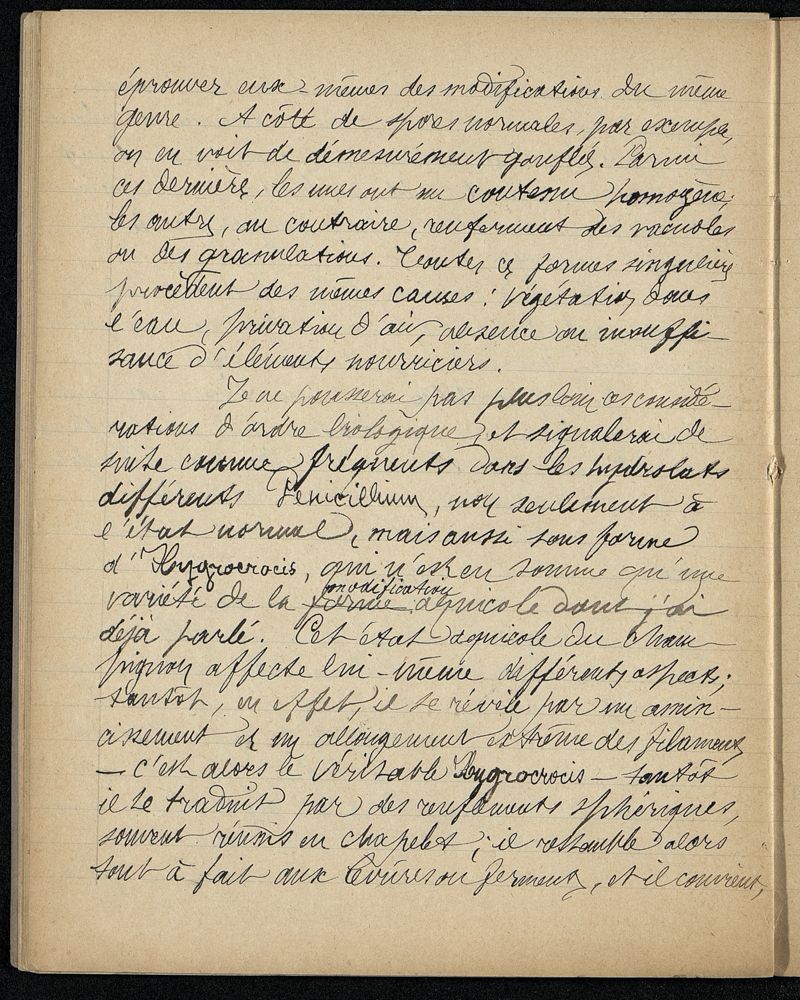 éprouver eux-mêmes des modifications du même
genre. A côté de spores normales, par exemple,
on en voit de démesurément gonflés. Parmi
ces dernières, les unes ont un contenu homogène,
les autres, au contraire, renferment des vacuoles
ou des granulations. Toutes ces formes singulières
procèdent des mêmes causes : végétation dans
l'eau, privation d'air, absence ou insuffi-
sance d'éléments nourriciers.
Je ne pousserai pas plus loin ces considé-
rations d'ordre biologique, et signalerai de
suite comme fréquents dans les hydrolats
différents Penicillium, non seulement à
l'état normal, mais aussi sous forme
d'Hygrocrocis, qui n'est en somme qu'une
variété de la forme modification aquicole dont j'ai
déjà parlé. Cet état aquicole du cham-
pignon affecte lui-même différents aspects ;
tantôt, en effet, il se révèle par un amin-
cissement et un allongement extrême des filaments
— c'est alors le véritable Hygrocrocis — tantôt
il se traduit par des renflements sphériques,
souvent réunis en chapelet ; il ressemble alors
tout à fait aux levûres ou ferments, et il convient,